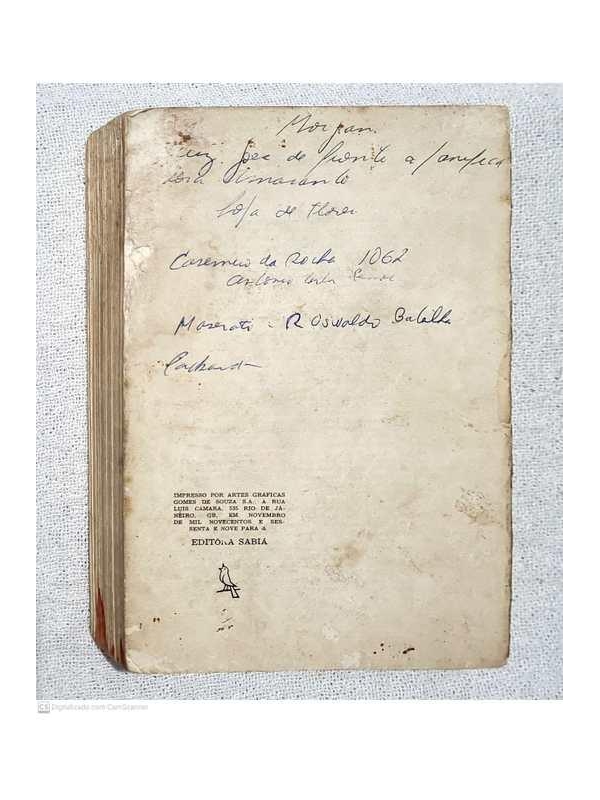 Morgan.
de frente a
Loja de Flores
Casemiro da Rocha 1062
Antonio
Maserati - R Oswaldo Batalha
Packard
IMPRESSO POR ARTES GRAFICAS
GOMES DE SOUZA S.A. A RUA
LUIS CAMARA, 535 RIO DE JA-
NEIRO, GB, EM NOVEMBRO
DE MIL NOVECENTOS E SES-
SENTA E NOVE PARA A
EDITÔRA SABIÁ
CS Digitalizado com CamScanner